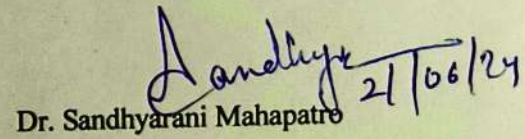 Sandhya
21/06/24
Dr. Sandhyarani Mahapatro